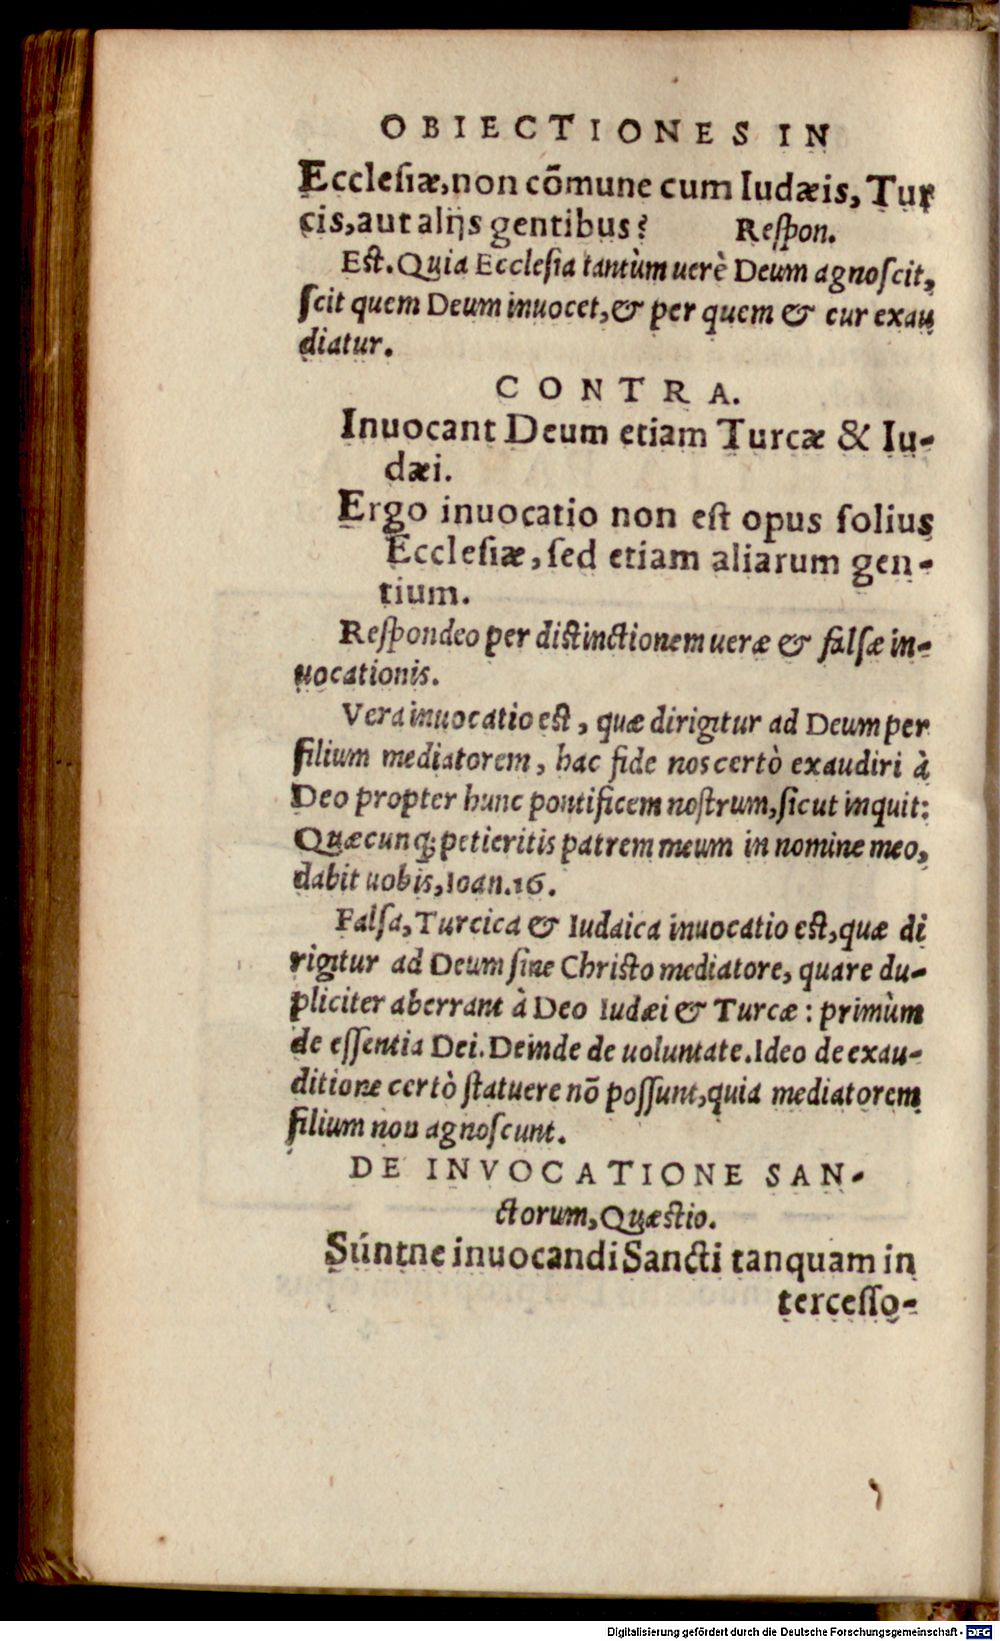 OBIECTIONES IN
Eccleſiæ, non cõmune cum Iudæis, Tur
cis, aut alijs gentibus? Reſpon.
Eſt. Quia Eccleſia tantùm uerè Deum agnoſcit,
ſcit quem Deum inuocet, & per quem & cur exau
diatur.
CONTRA.
Inuocant Deum etiam Turcæ & Iu-
dæi.
Ergo inuocatio non eſt opus ſolius
Eccleſiæ, ſed etiam aliarum gen-
tium.
Reſpondeo per diſtinctionem ueræ & falſæ in-
uocationis.
Vera inuocatio eſt, quæ dirigitur ad Deum per
filium mediatorem, hac fide nos certò exaudiri à
Deo propter hunc pontificem noſtrum, ſicut inquit:
Quæcunq; petieritis patrem meum in nomine meo,
dabit uobis, Ioan. 16.
Falſa, Turcica & Iudaica inuocatio eſt, quæ di
rigitur ad Deum ſine Chriſto mediatore, quare du-
pliciter aberrant à Deo Iudæi & Turcæ: primùm
de eſſentia Dei. Deinde de uoluntate. Ideo de exau-
ditione certò ſtatuere nõ poſſunt, quia mediatorem
filium non agnoſcunt.
DE INVOCATIONE SAN-
ctorum, Quæſtio.
Súntne inuocandi Sancti tanquam in
terceſſo-
Digitalisierung gefördert durch die Deutsche Forschungsgemeinschaft - DFG